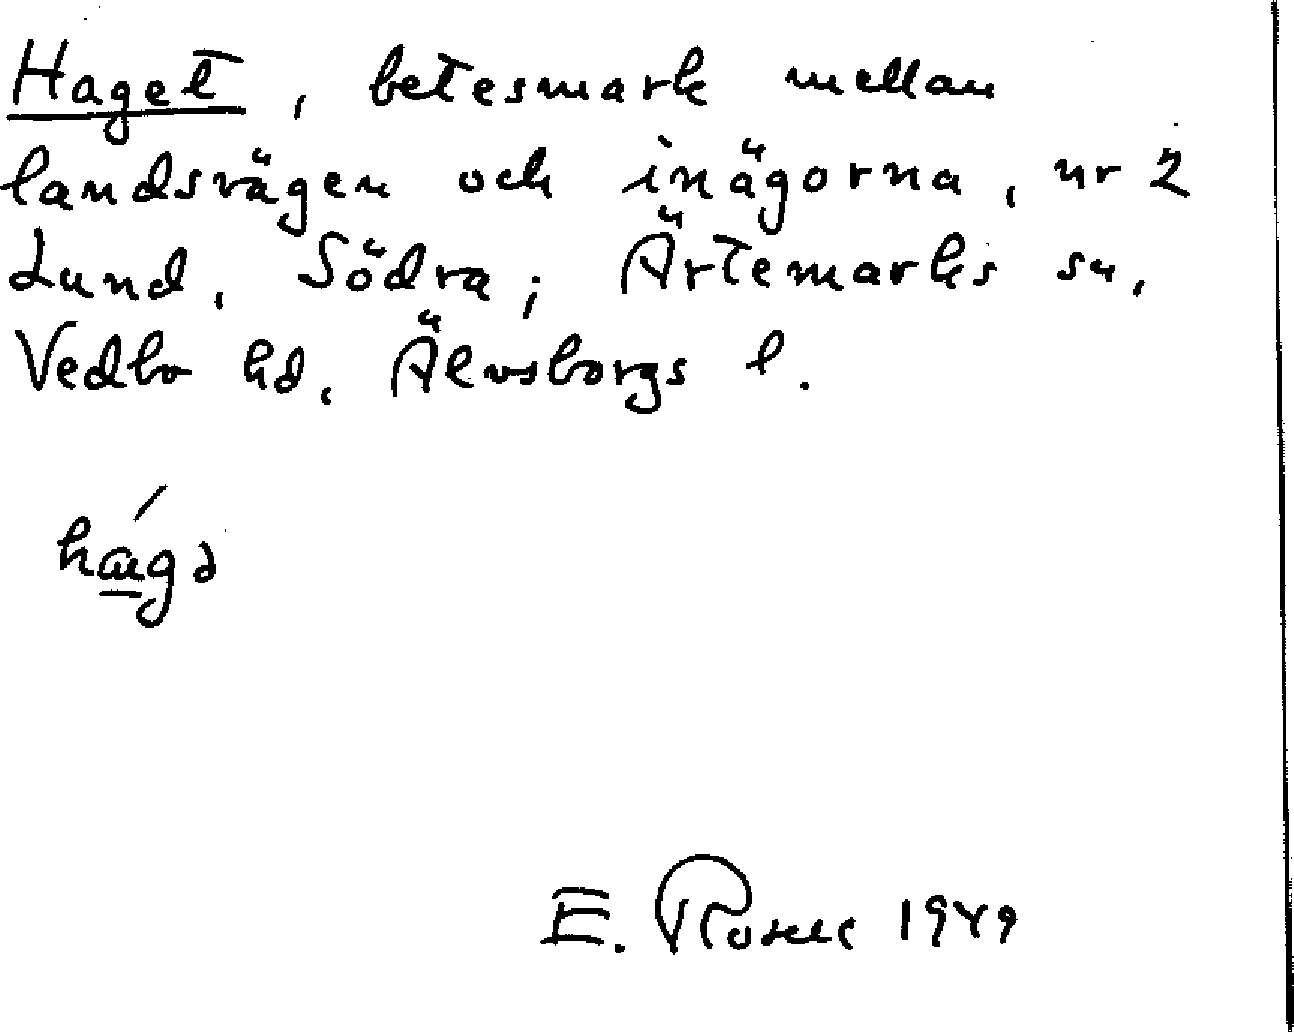 Haget, betesmark mellan
landsvägen och inägorna, nr 2
Lund, Södra; Ärtemarks sn,
Vedbo hd, Älvsborgs l.
E. Rosell 1949